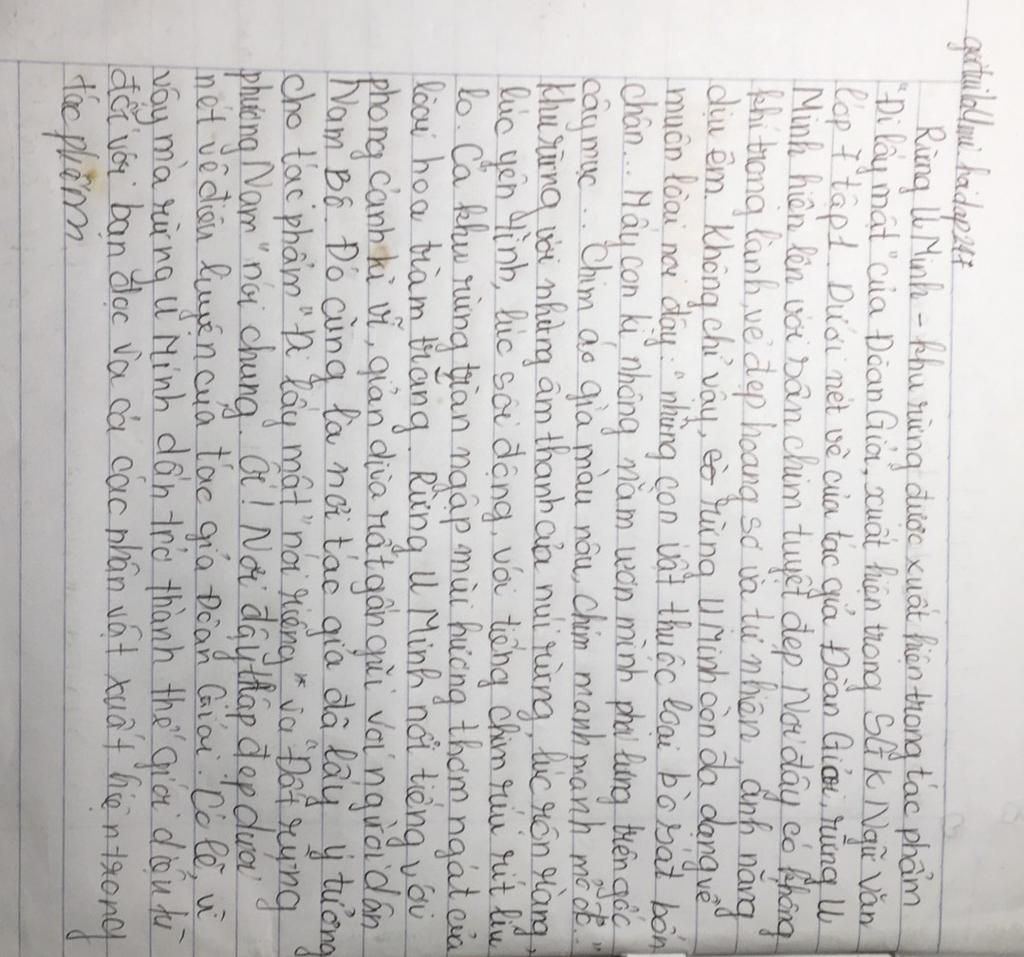 Rừng U Minh - khu rừng được xuất hiện trong tác phẩm
"Đi lấy mật" của Đoàn Giỏi, xuất hiện trong SGK Ngữ văn
lớp 7 tập 1. Dưới nét vẽ của tác giả Đoàn Giỏi, rừng U
Minh hiện lên với sân chim tuyệt đẹp. Nơi đây có không
khí trong lành, vẻ đẹp hoang sơ và tự nhiên, ánh nắng
dịu êm. Không chỉ vậy, rừng U Minh còn đa dạng về
muôn loài nơi đây: "những con vật thuộc loại bò sát bốn
chân... Mấy con kì nhông nằm vươn mình phơi lưng trên gốc
cây mục... Chim áo già màu nâu, chim manh manh mỏ đỏ.."
Khu rừng với những âm thanh của núi rừng, lúc rộn ràng,
lúc yên tĩnh, lúc sôi động, với tiếng chim ríu rít líu
lo. Cả khu rừng tràn ngập mùi hương thơm ngát của
loài hoa tràm trắng. Rừng U Minh nổi tiếng với
phong cảnh kì vĩ, giản dị và rất gần gũi với người dân
Nam Bộ. Đó cũng là nơi tác giả đã lấy ý tưởng
cho tác phẩm "Đi lấy mật" nói riêng" và "Đất rừng
phương Nam" nói chung. Ôi! Nơi đây thật đẹp dưới
nét vẽ điêu luyện của tác giả Đoàn Giỏi. Có lẽ, vì
vậy mà rừng U Minh dần trở thành thế giới diệu kì
đối với bạn đọc và cả các nhân vật xuất hiện trong
tác phẩm.